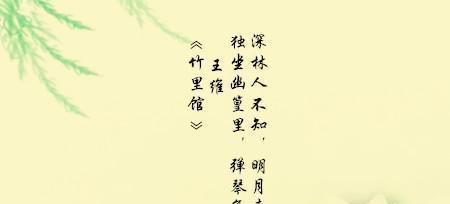 《竹里馆》
王维
独坐幽篁里，弹琴
深林人不知，明月